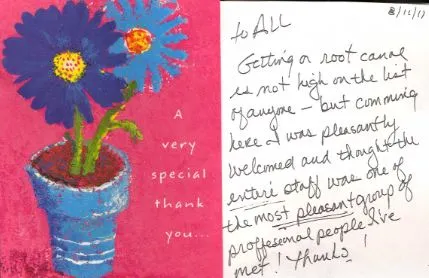 A
very
special
thank
you...
8/11/11
to ALL
Getting a root canal
is not high on the list
of anyone – but comming
here I was pleasantly
welcomed and thought the
entire staff was one of
the most pleasant group of
proffesional people I've
met! Thanks!